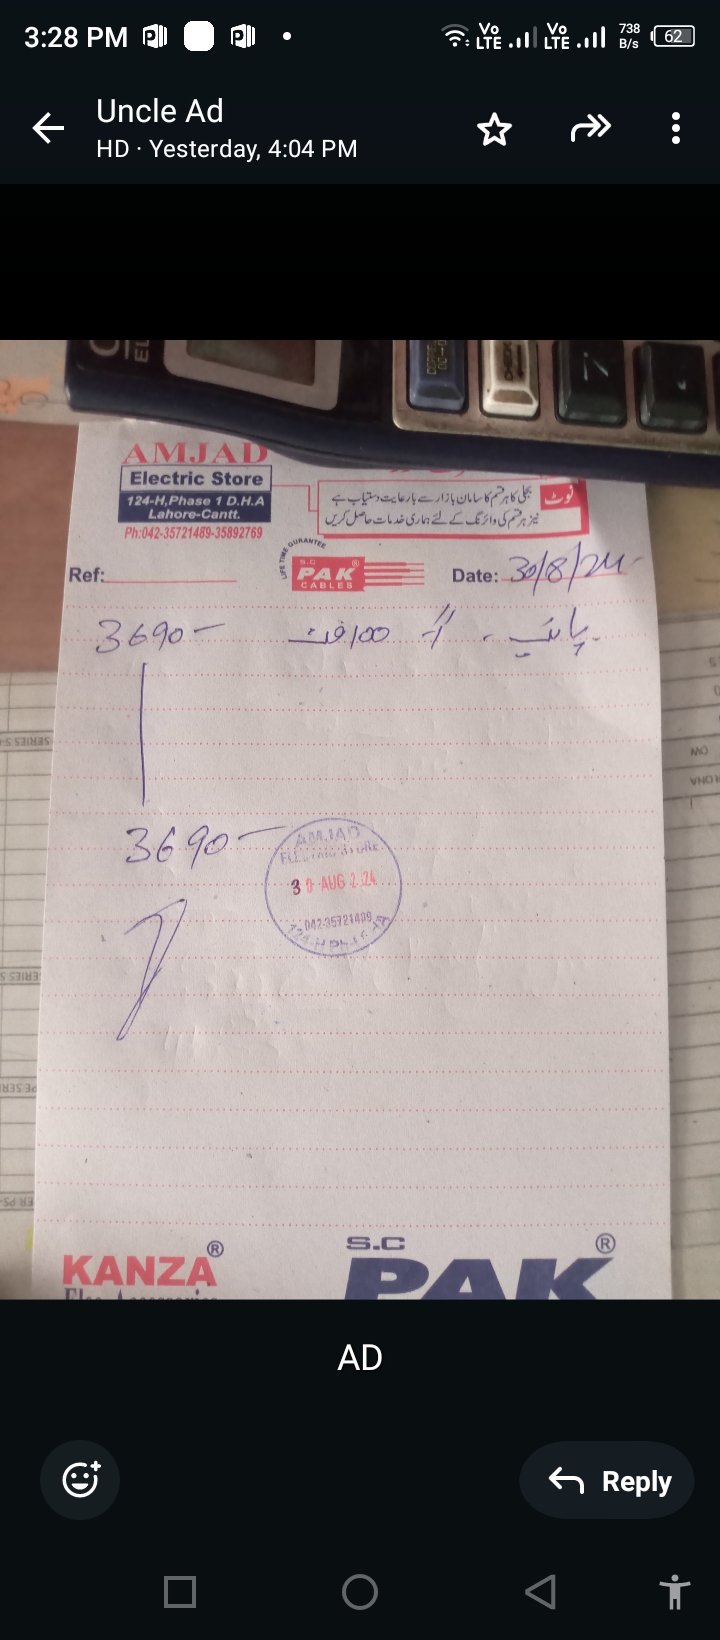 3:28 PM
Vo LTE Vo LTE 738 B/s 62
Uncle Ad
HD · Yesterday, 4:04 PM
AMJAD
Electric Store
124-H,Phase 1 D.H.A
Lahore-Cantt.
Ph:042-35721489-35892769
نوٹ
بجلی کا ہر قسم کا سامان بازار سے بارعایت دستیاب ہے
نیز ہر قسم کی وائرنگ کے لئے ہماری خدمات حاصل کریں
Ref:
LIFE TIME GURANTEE
S.C PAK ®
CABLES
Date: 30/8/24
پائپ 1" 100 فٹ 3690-
3690-
AMJAD
ELECTRIC STORE
30 AUG 2024
042-35721489
124-H
KANZA ®
S.C
PAK ®
AD
Reply